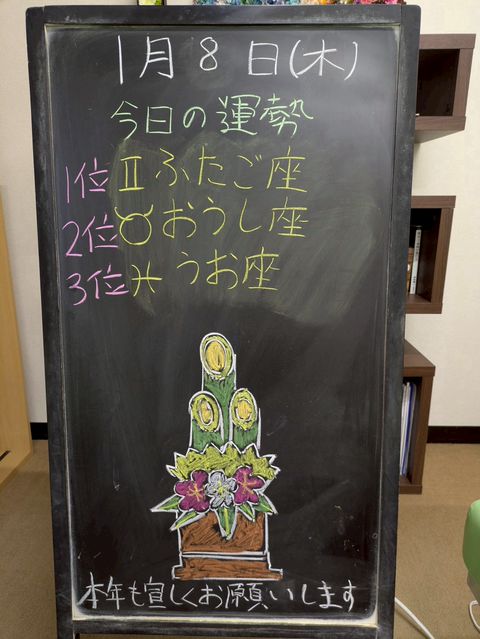 1月8日(木)
今日の運勢
1位♊ふたご座
2位♉おうし座
3位♓うお座
本年も宜しくお願いします